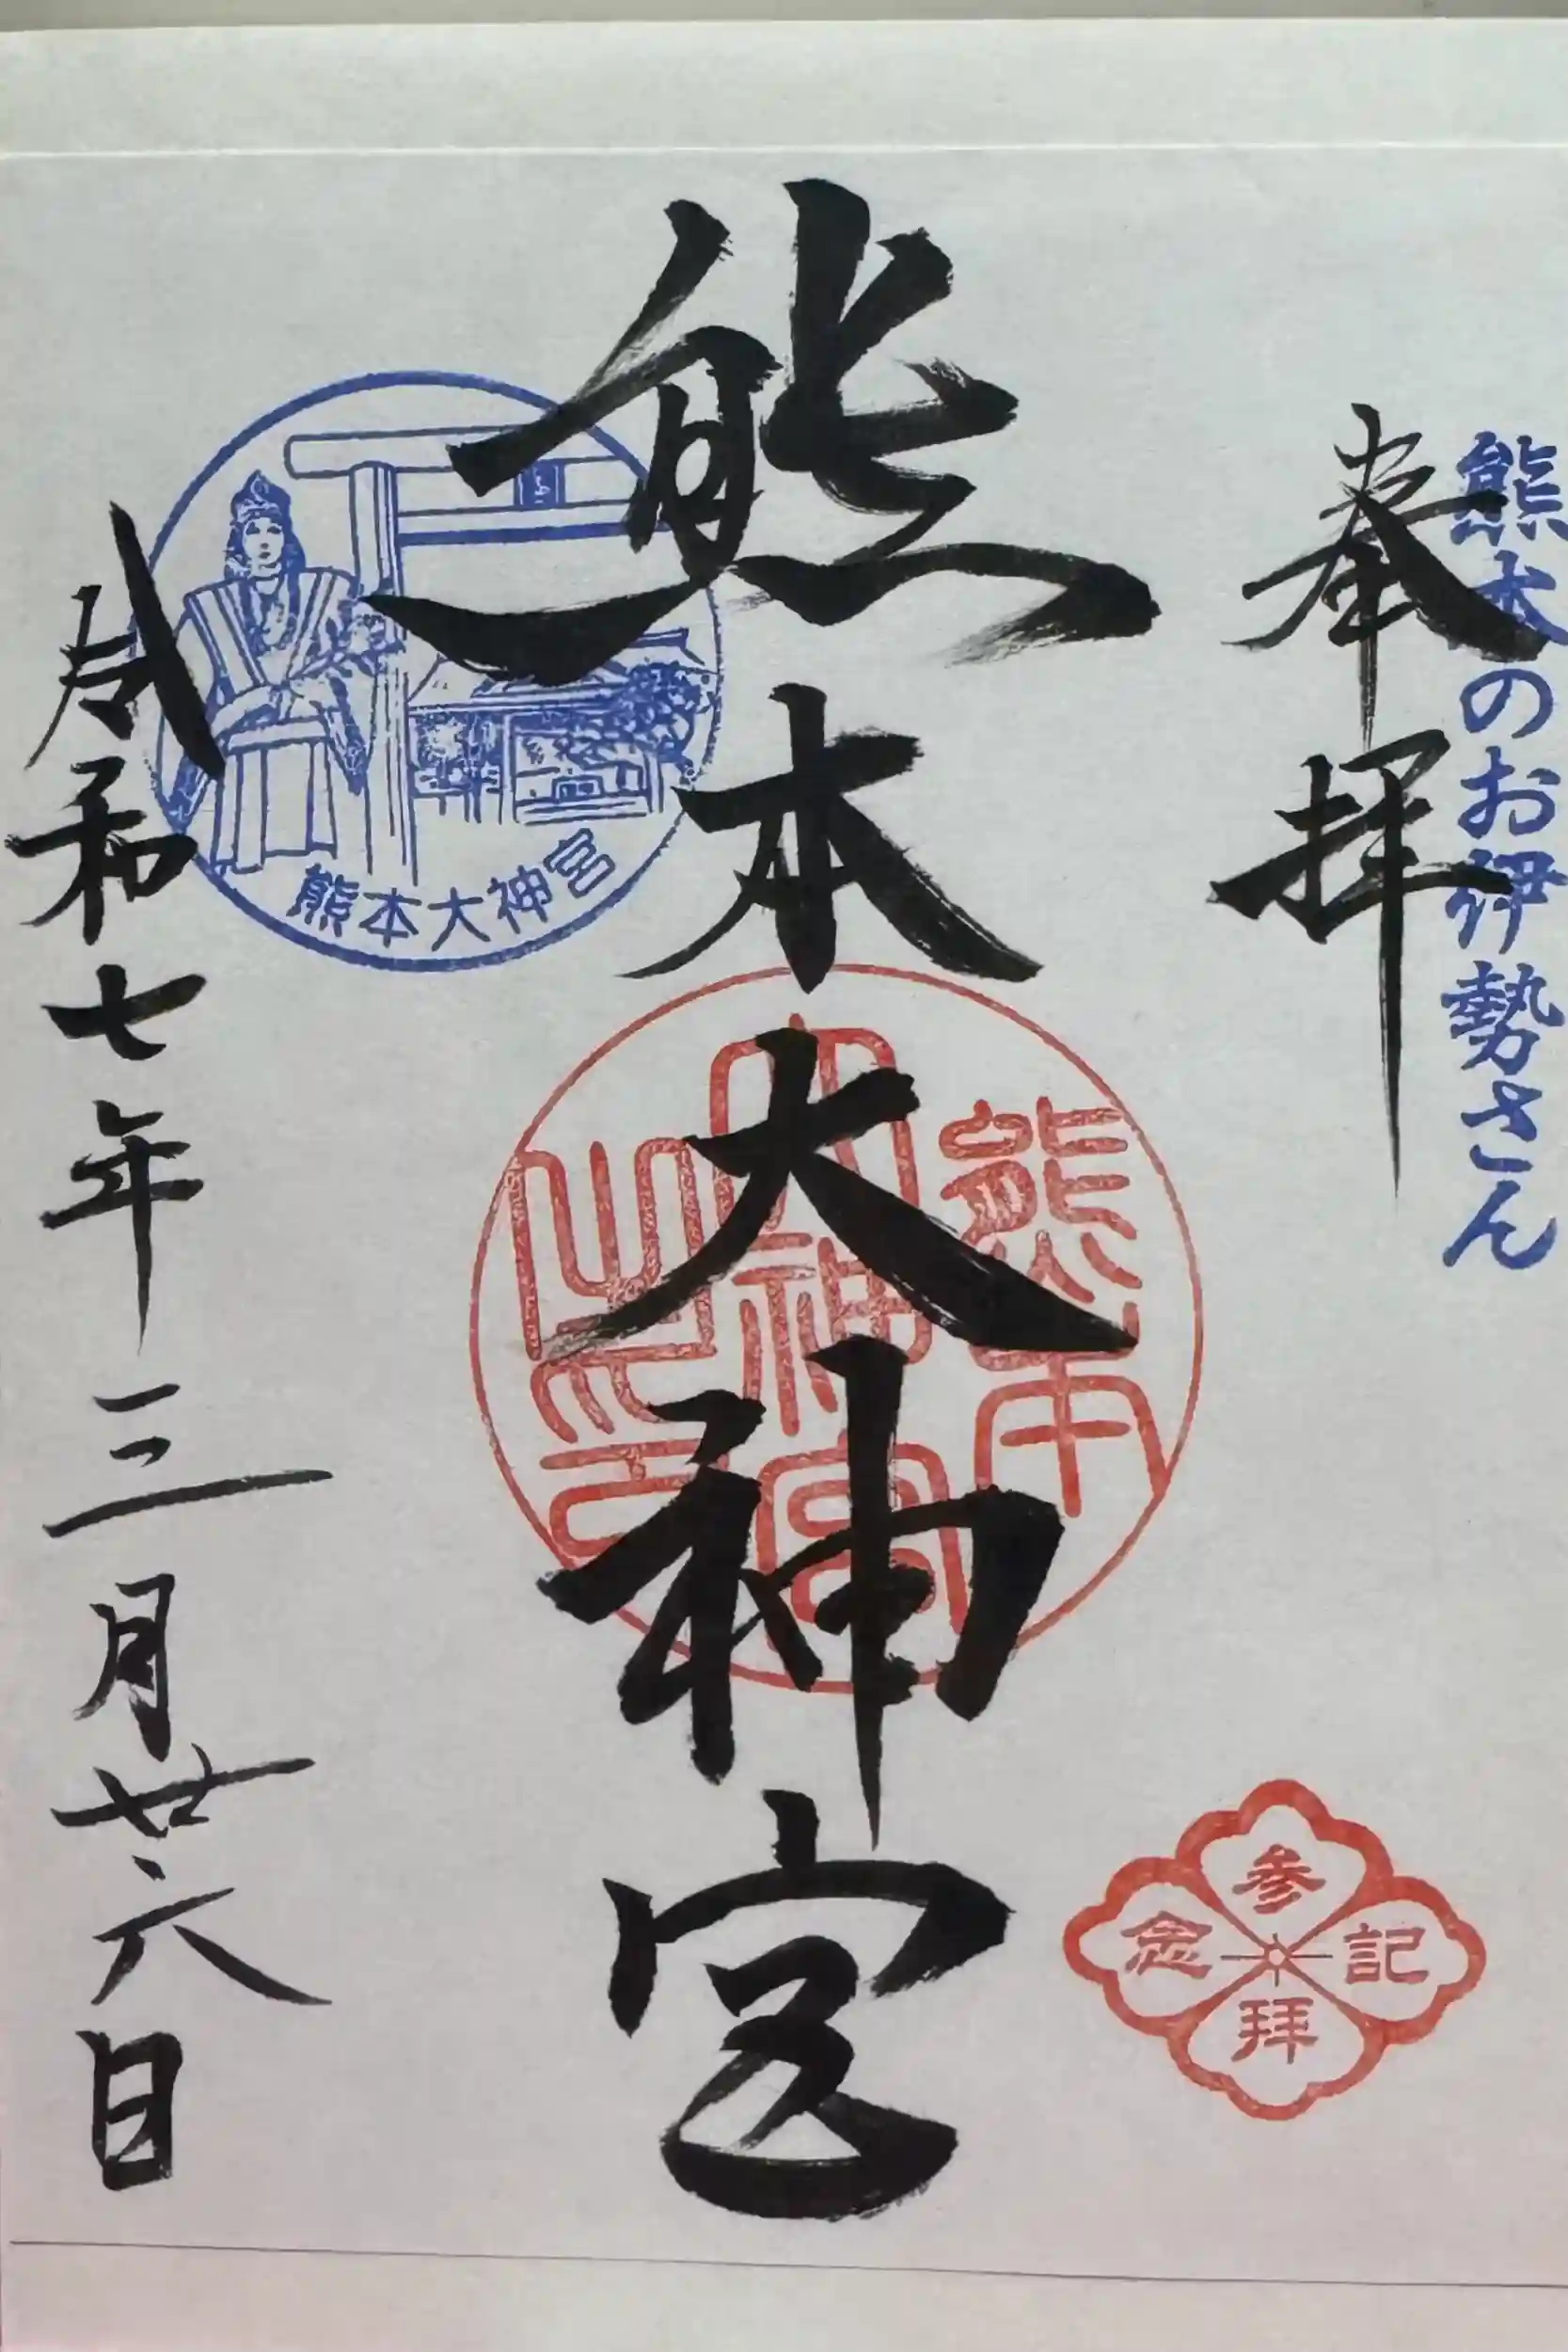 熊本のお伊勢さん
奉拝
熊本大神宮
令和七年三月廿六日
熊本大神宮
熊本
大神宮
之印
参拝
記念